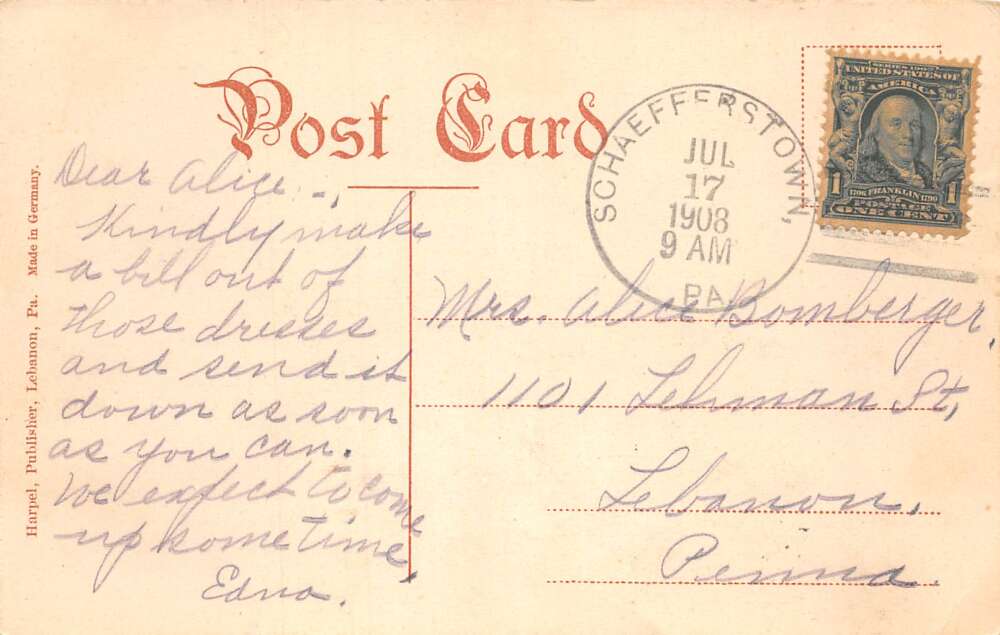 Post Card
SCHAEFFERSTOWN,
JUL
17
1908
9 AM
PA.
SERIES 1902
UNITED STATES OF
AMERICA
1706 FRANKLIN 1790
1 POSTAGE 1
ONE CENT
Harpel, Publisher, Lebanon, Pa. Made in Germany.
Dear Alice:-
Kindly make
a bill out of
those dresses
and send it
down as soon
as you can.
We expect to come
up some time
Edna.
Mrs. Alice Bomberger,
1101 Lehman St,
Lebanon,
Penna.